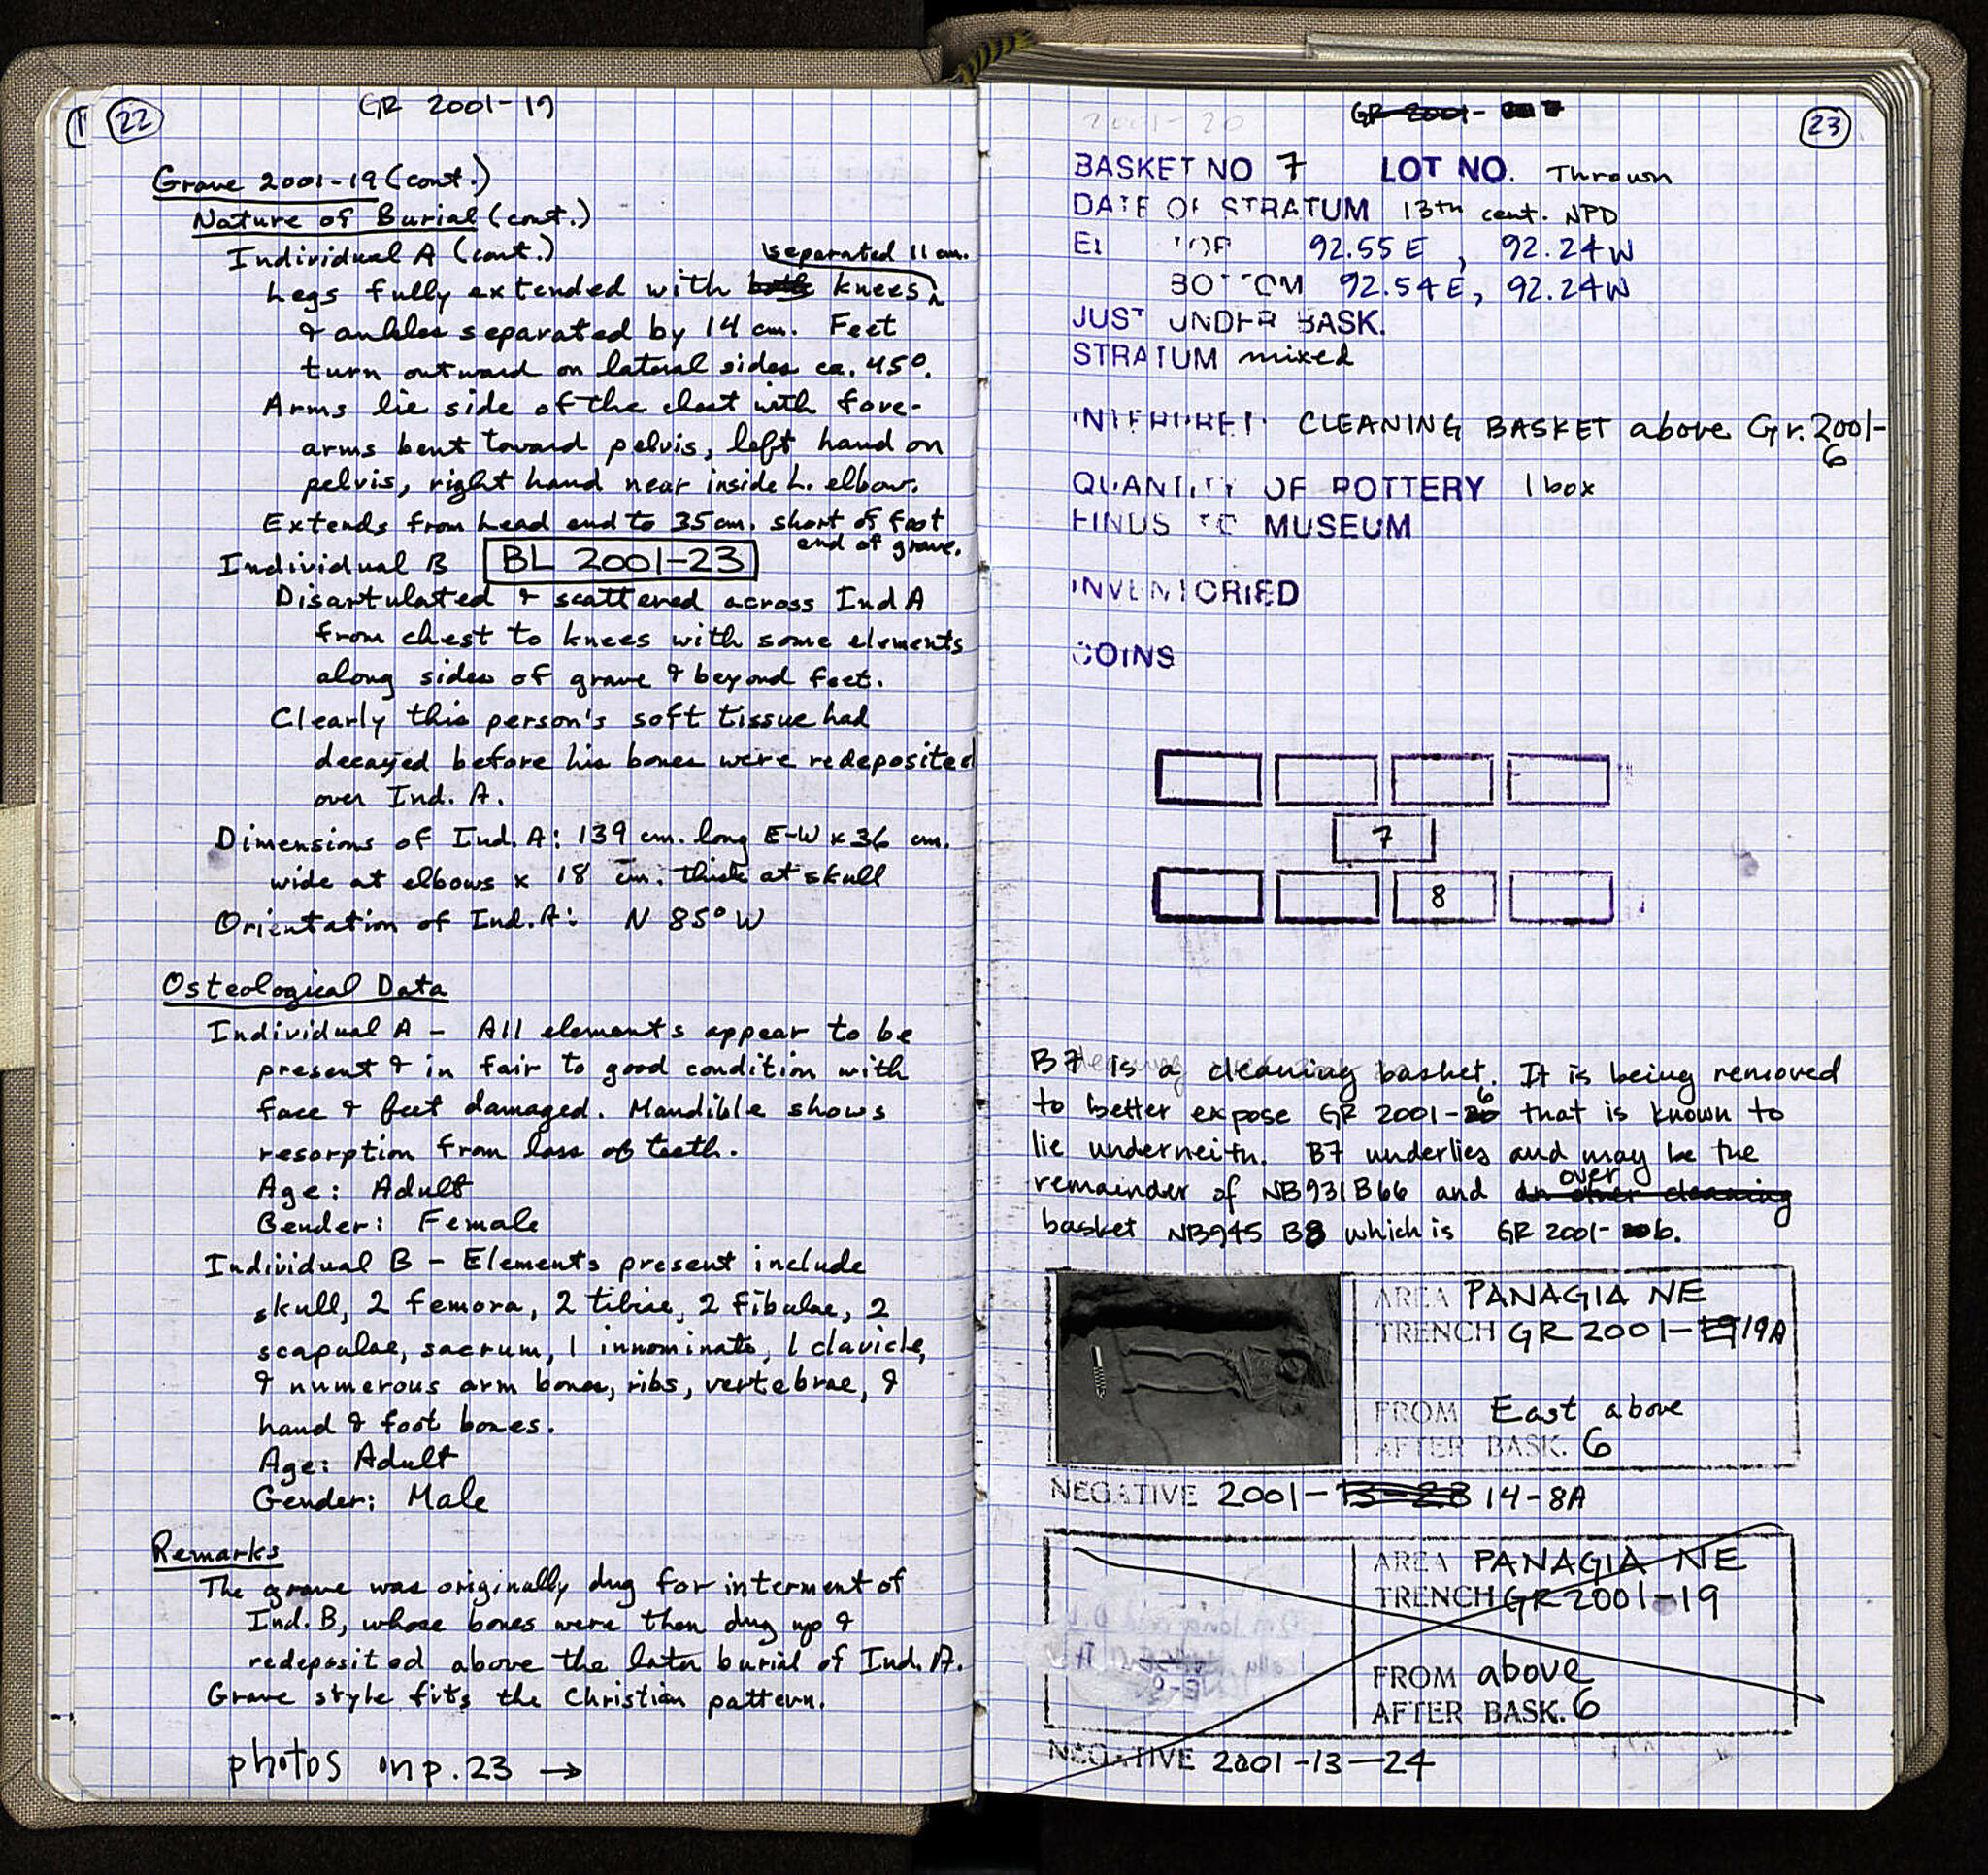 22
GR 2001-19
Grave 2001-19 (cont.)
Nature of Burial (cont.)
Individual A (cont.)
separated 11 cm.
Legs fully extended with both knees
& ankles separated by 14 cm. Feet
turn outward on lateral sides ca. 45°.
Arms lie side of the chest with fore-
arms bent toward pelvis, left hand on
pelvis, right hand near inside L. elbow.
Extends from head end to 35 cm. short of foot
end of grave.
Individual B BL 2001-23
Disartulated & scattered across Ind A
from chest to knees with some elements
along sides of grave & beyond feet.
Clearly this person's soft tissue had
decayed before his bones were redeposited
over Ind. A.
Dimensions of Ind. A: 139 cm. long E-W x 36 cm.
wide at elbows x 18 cm. thick at skull
Orientation of Ind. A: N 85° W
Osteological Data
Individual A – All elements appear to be
present & in fair to good condition with
face & feet damaged. Mandible shows
resorption from loss of teeth.
Age: Adult
Gender: Female
Individual B – Elements present include
skull, 2 femora, 2 tibiae, 2 fibulae, 2
scapulae, sacrum, 1 innominate, 1 clavicle,
& numerous arm bones, ribs, vertebrae, &
hand & foot bones.
Age: Adult
Gender: Male
Remarks
The grave was originally dug for interment of
Ind. B, whose bones were then dug up &
redeposited above the later burial of Ind. A.
Grave style fits the Christian pattern.
photos on p. 23 →
2001-20
GR 2001-
23
BASKET NO 7 LOT NO. Thrown
DATE OF STRATUM 13th cent. NPD
EL TOP 92.55 E, 92.24 W
BOTTOM 92.54 E, 92.24 W
JUST UNDER BASK.
STRATUM mixed
INTERPRET. CLEANING BASKET above Gr. 2001-
6
QUANTITY OF POTTERY 1 box
FINDS TO MUSEUM
INVENTORIED
COINS
7
8
B7 is a cleaning basket. It is being removed
to better expose GR 2001-6 that is known to
lie underneitn. B7 underlies and may be the
remainder of NB931 B66 and over
basket NB945 B8 which is GR 2001-6.
AREA PANAGIA NE
TRENCH GR 2001-19A
FROM East above
AFTER BASK. 6
NEGATIVE 2001-13-28 14-8A
AREA PANAGIA NE
TRENCH GR 2001-19
FROM above
AFTER BASK. 6
NEGATIVE 2001-13-24